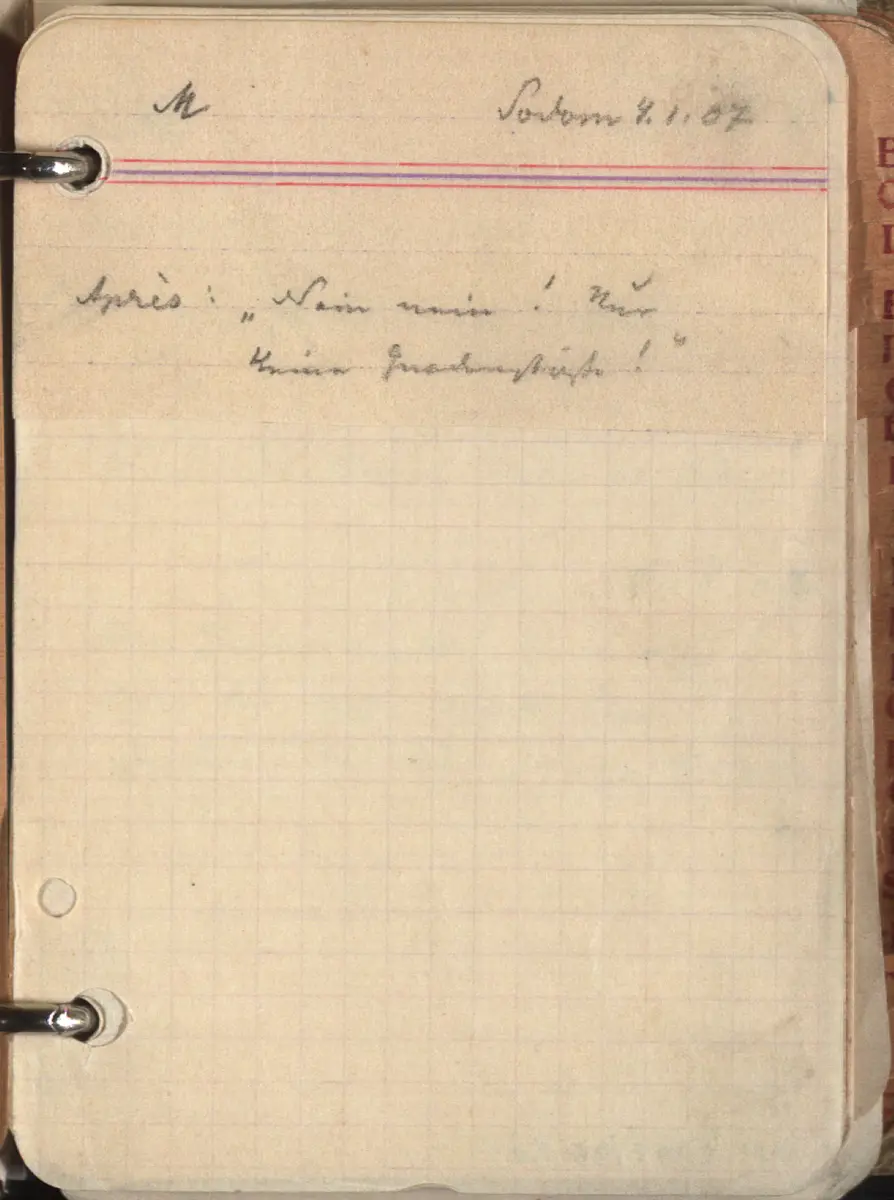 M Sodom 4.1.07
Après: „Nein nein! Nur
keine Gnadenstöße!“